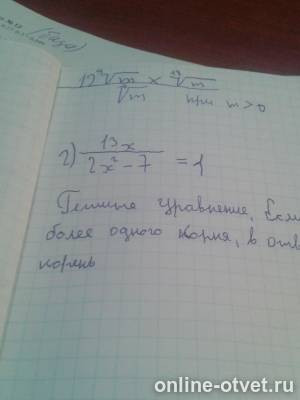 (База)
12 √m × √m
√m при m > 0
2) 13x
2x² - 7 = 1
Решите уравнение, Если
более одного корня, в отв
корень
online-otvet.ru